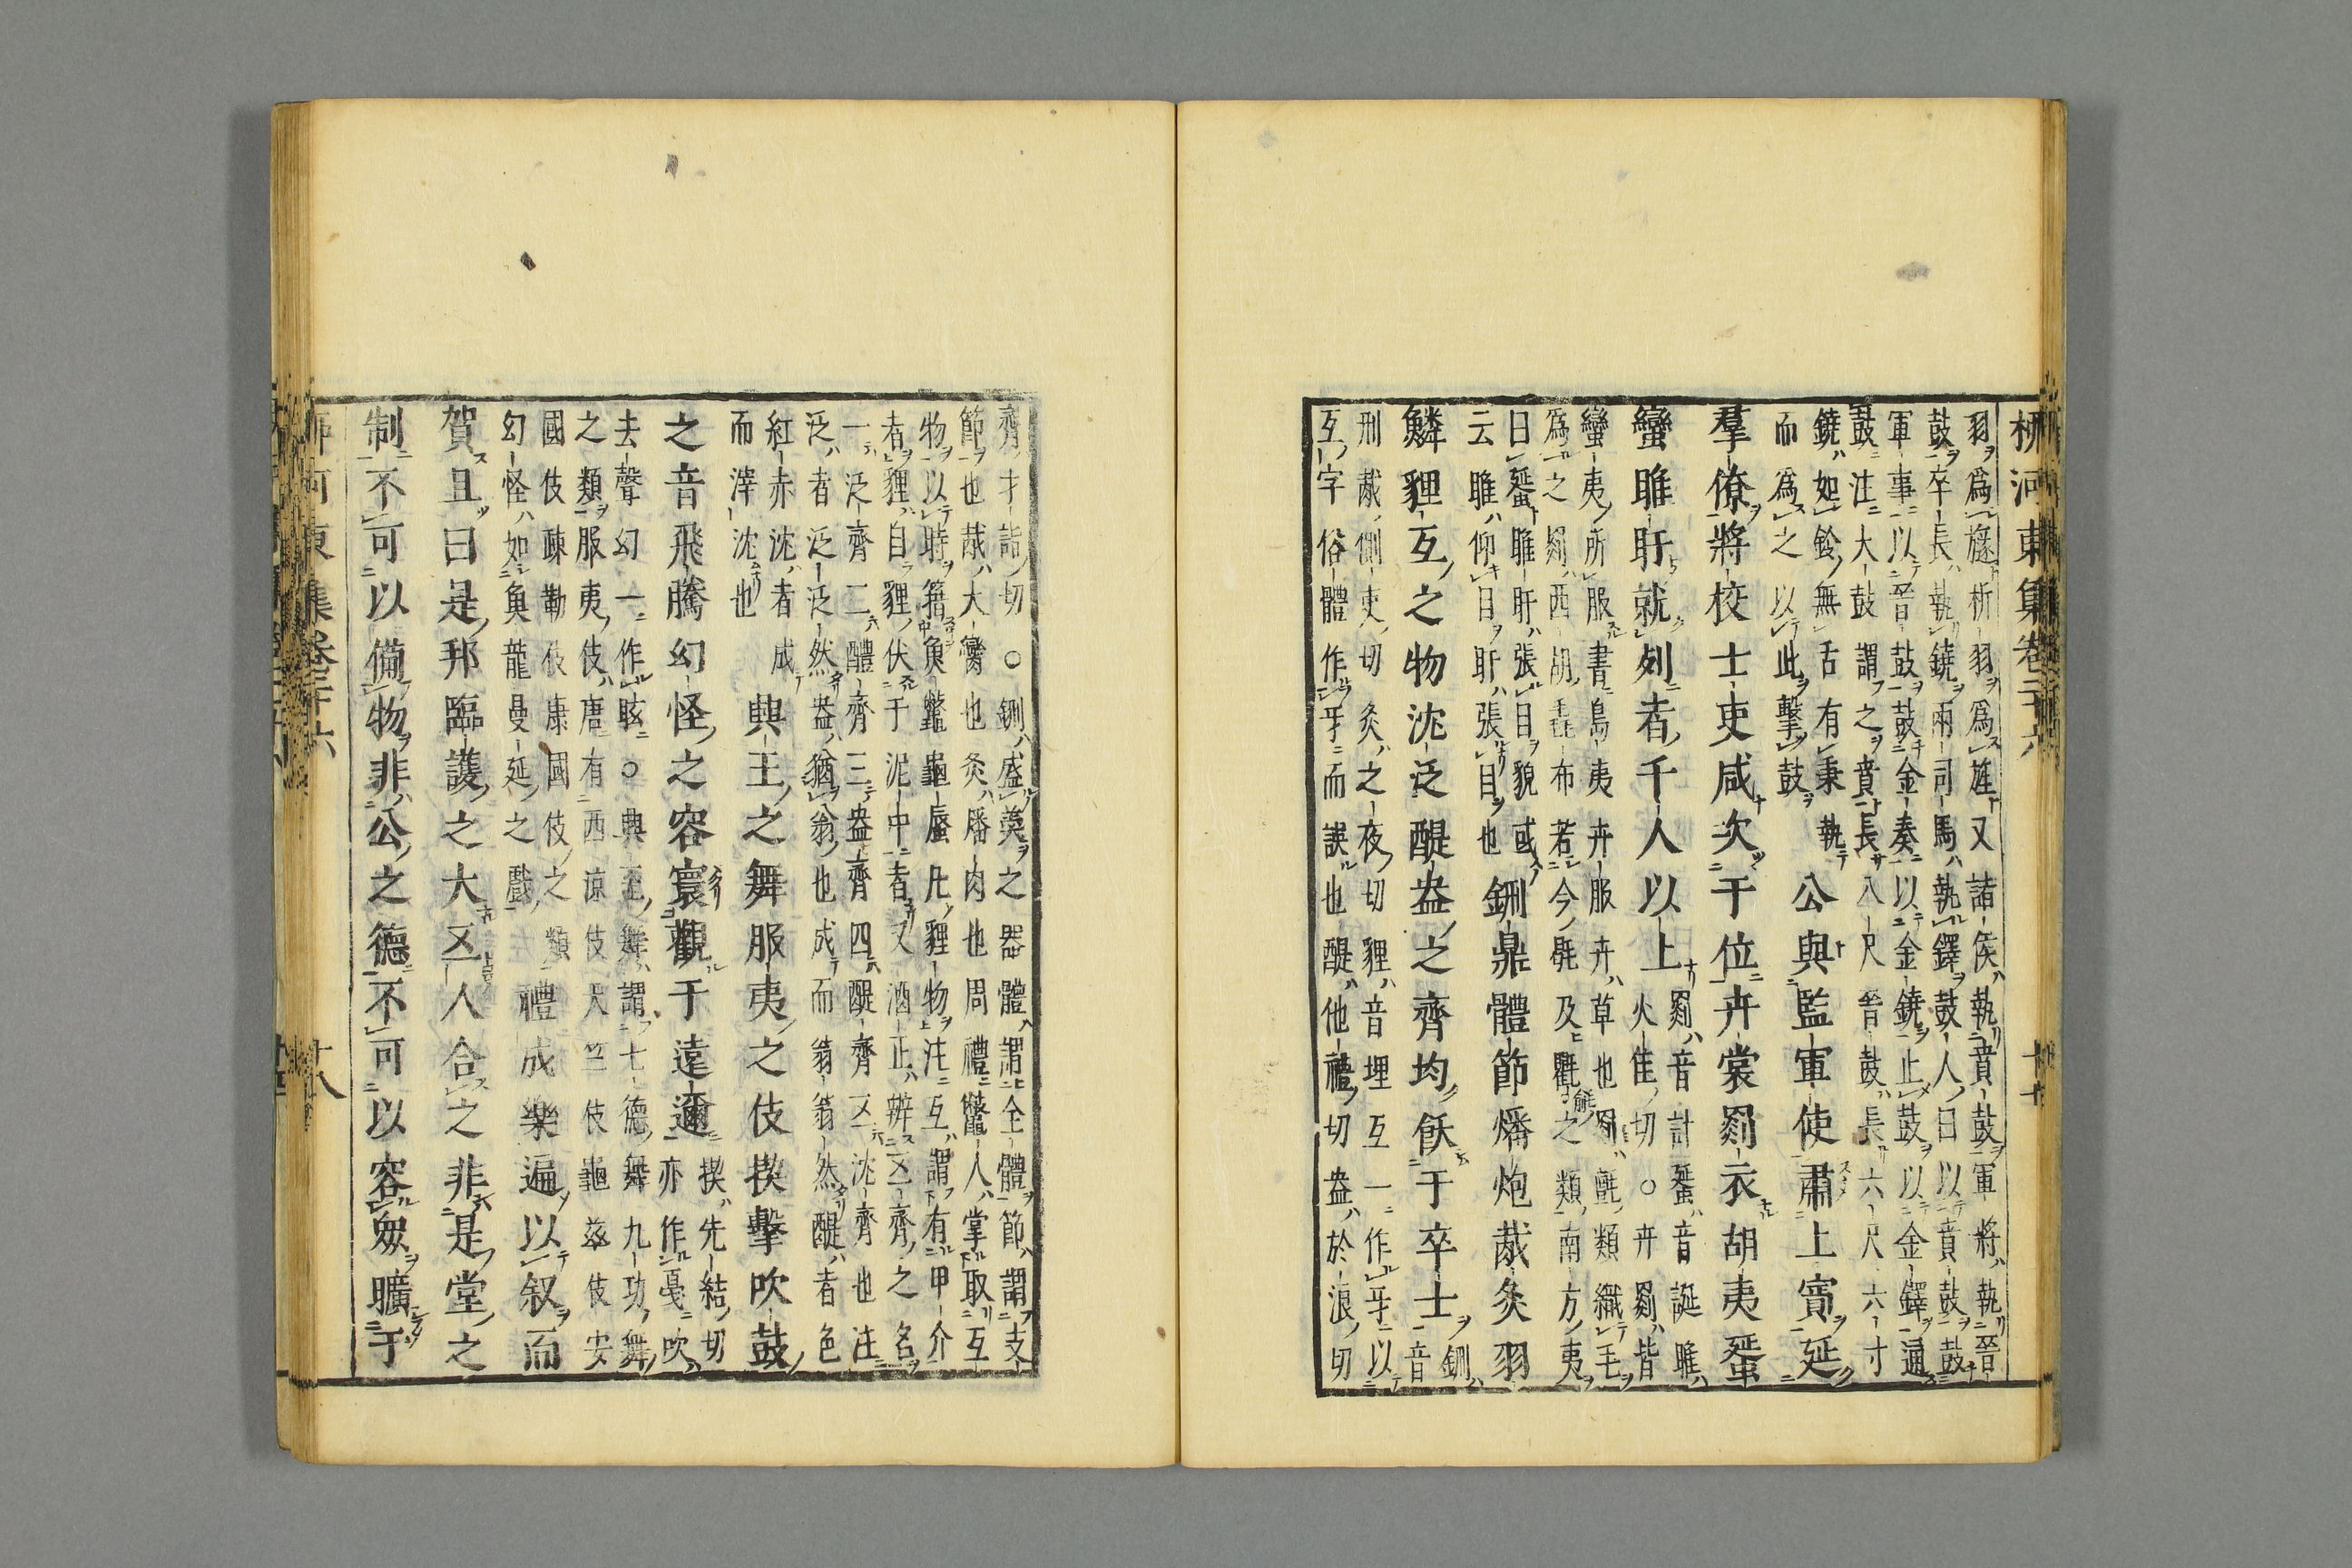 柳河東集卷二十六 十七
羽爲旞析羽爲旌又諸侯執賁鼓軍將執晉
鼓卒長執鐃兩司馬執鐸鼓人曰以賁鼓鼓
軍事以晉鼓鼓金奏以金鐃止鼓以金鐸通
鼓注大鼓謂之賁長八尺晉鼓長六尺六寸
鐃如鈴無舌有秉執
而爲之以此擊鼓
公與監軍使肅上賓延
羣僚將校士吏咸次于位卉裳罽衣胡夷蜑
蠻睢盱就列者千人以上
罽音計蜑音誕睢
火隹切○卉罽皆
蠻夷所服書島夷卉服卉草也罽氈類織毛
爲之罽西胡毳布若今㲜及氍毹之類南方夷
曰蜑睢盱張目貌或
云睢仰目盱張目也
鉶鼎體節燔炮胾炙羽
鱗貍互之物沈泛醍盎之齊均飫于卒士
鉶
音
刑胾側吏切炙之夜切貍音埋互一作牙以
互字俗體作牙而誤也醍他禮切盎於浪切
齊才詣切○鉶盛羹之器體謂全體節謂支
節也胾大臠也炙膰肉也周禮鼈人掌取互
物以時籍魚鼈龜蜃凡貍物注互謂有甲介
者貍自貍伏于泥中者又酒正辨五齊之名
一泛齊二醴齊三盎齊四醍齊五沈齊也注
泛者泛泛然盎猶翁也成而翁翁然醍者色
紅赤沈者成
而滓沈也
興王之舞服夷之伎揳擊吹鼓
之音飛騰幻怪之容寰觀于遠邇
揳先結切
亦作戞吹
去聲幻一作眩○興王舞謂七德舞九功舞
之類服夷伎唐有西涼伎天竺伎龜茲伎安
國伎疎勒伎康國伎之類
幻怪如魚龍曼延之戲
禮成樂遍以叙而
賀且曰是邦臨護之大五人合之非是堂之
制不可以備物非公之德不可以容衆曠于
柳河東集卷二十六 十八